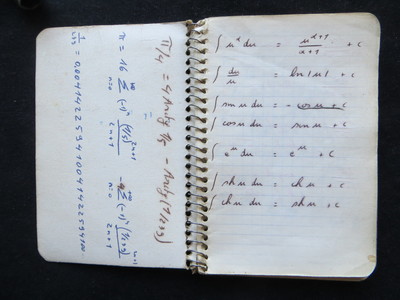 π/4 = 4 Artg 1/5 - Artg (1/239)
π = 16 Σ n=0 ∞ (-1)ⁿ (1/5)²ⁿ⁺¹ / 2n+1 - 4 Σ n=0 ∞ (-1)ⁿ (1/239)²ⁿ⁺¹ / 2n+1
∫ u^α du = u^(α+1) / α+1 + c
∫ du/u = ln |u| + c
∫ sin u du = - cos u + c
∫ cos u du = sin u + c
∫ e^u du = e^u + c
∫ sh u du = ch u + c
∫ ch u du = sh u + c